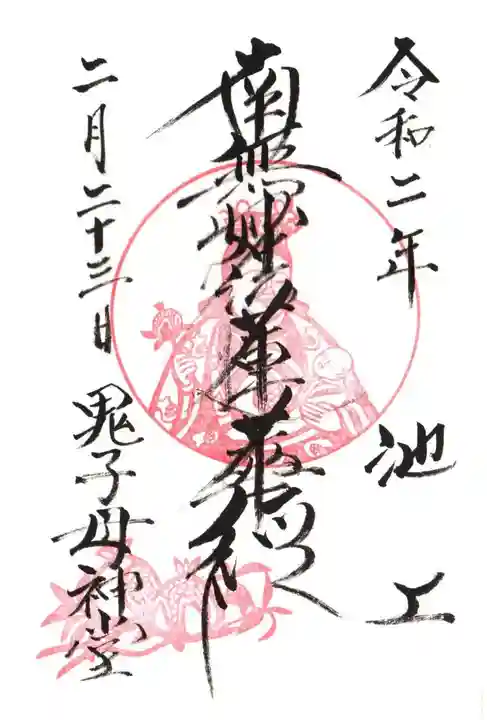 令和二年
池上
南無妙法蓮華経
二月二十三日
鬼子母神堂